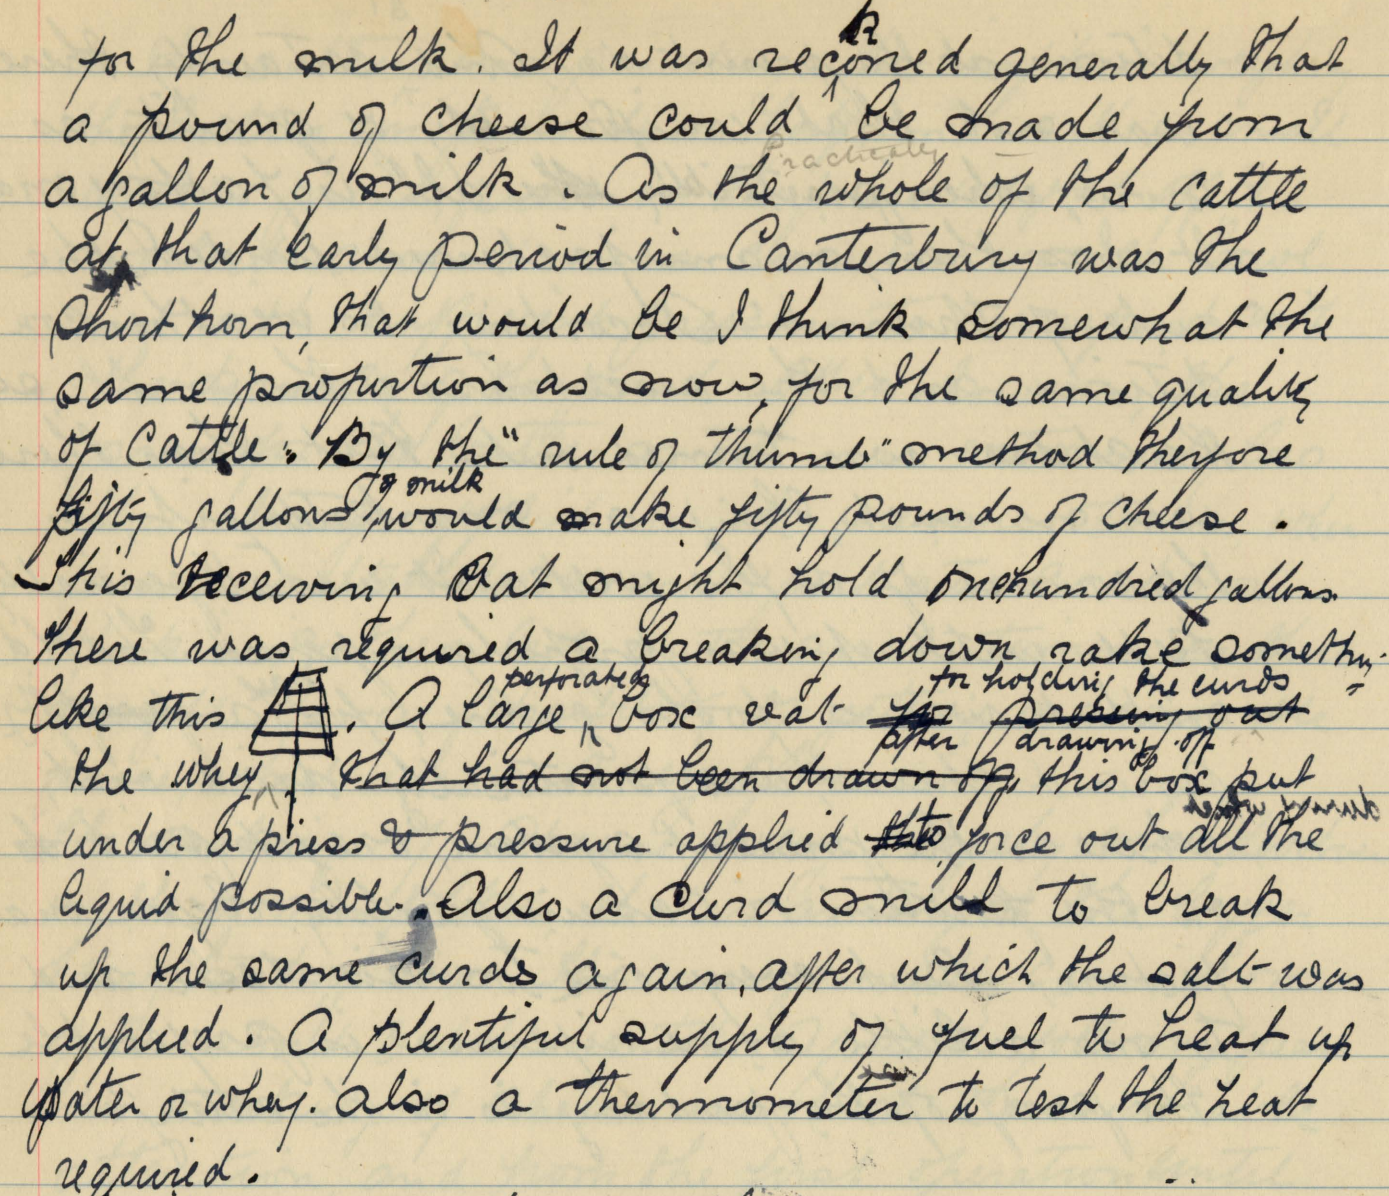 for the milk. It was reckoned generally that
a pound of cheese could be made from
a gallon of milk. As the practically whole of the cattle
at that early period in Canterbury was the
Shorthorn, that would be I think somewhat the
same proportion as now, for the same quality
of Cattle. By the "rule of thumb" method therfore
fifty gallons of milk would make fifty pounds of cheese.
This receiving vat might hold one hundred gallons.
There was required a breaking down rake somethin
like this . A large perforated box vat for holding the curds pressing out
the whey after drawing off that had not been drawn off, this box put
under a press & pressure applied to force out all the
liquid possible. Also a curd mill to break
up the same curds again, after which the salt was
applied. A plentiful supply of fuel to heat up
water or whey. also a thermometer to test the heat
required.